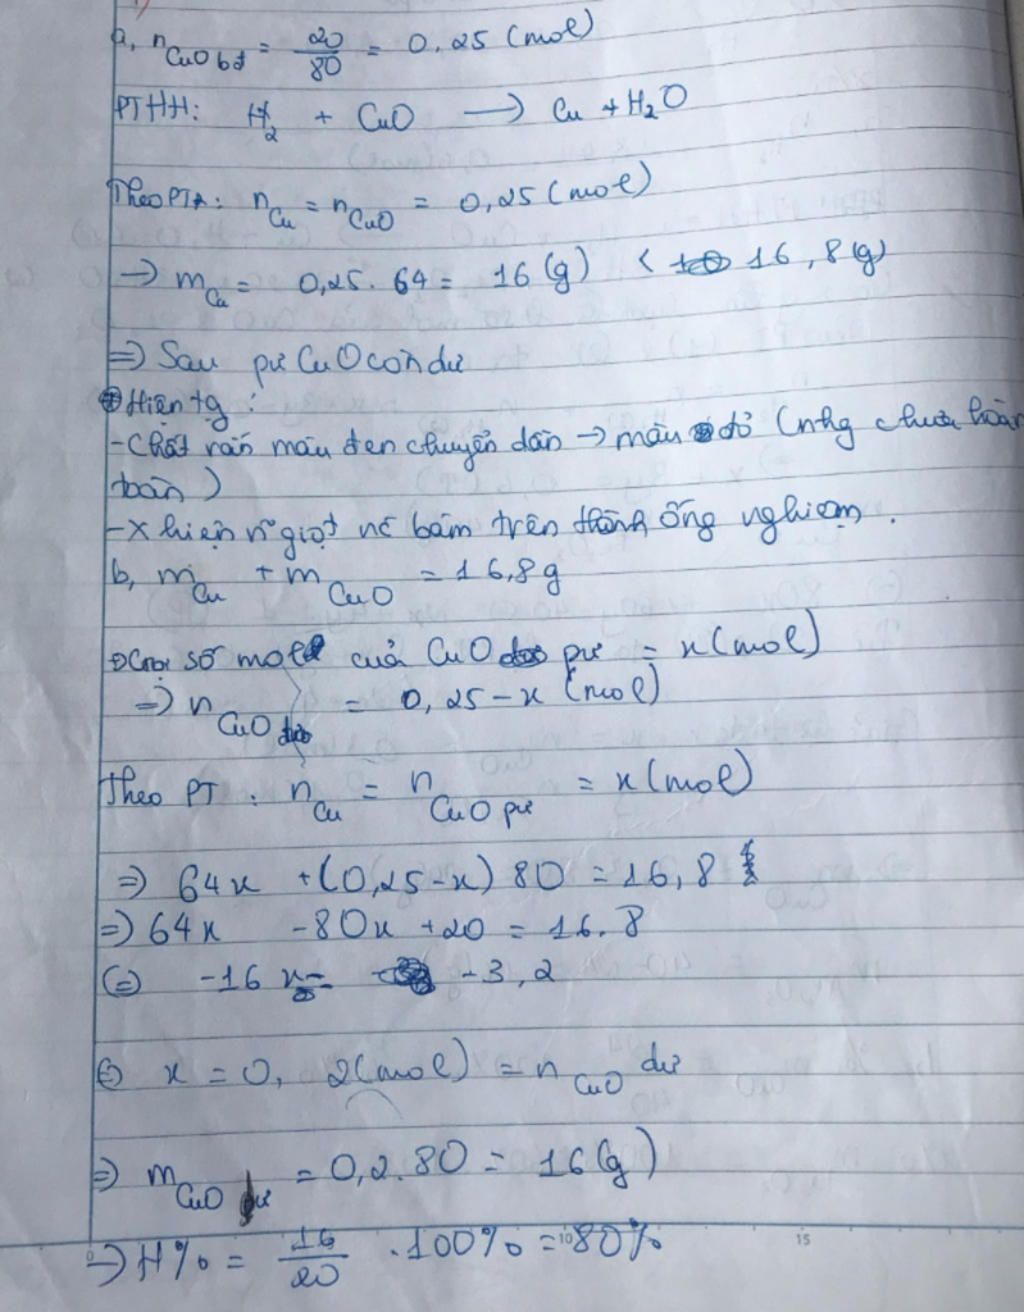 a, nCuO bđ = 20/80 = 0,25 (mol)
PTHH: H2 + CuO → Cu + H2O
Theo PTR: nCu = nCuO = 0,25 (mol)
→ mCu = 0,25 . 64 = 16 (g) < 16,8 (g)
⇒ Sau pư CuO còn dư
Hiện tg :
- Chất rắn màu đen chuyển dần → màu đỏ (nhg chưa hoàn
toàn)
- X hiện n~ giọt nc bám trên thành ống nghiệm .
b, mCu + mCuO = 16,8g
Gọi số mol của CuO pư = x (mol)
⇒ nCuO dư = 0,25 - x (mol)
Theo PT : nCu = nCuO pư = x (mol)
⇒ 64x + (0,25 - x) 80 = 16,8
⇒ 64x - 80x + 20 = 16.8
⇔ -16x = -3,2
⇔ x = 0,2 (mol) = nCuO dư
⇒ mCuO pư = 0,2 . 80 = 16 (g)
→ H% = 16/20 . 100% = 80%
10 15